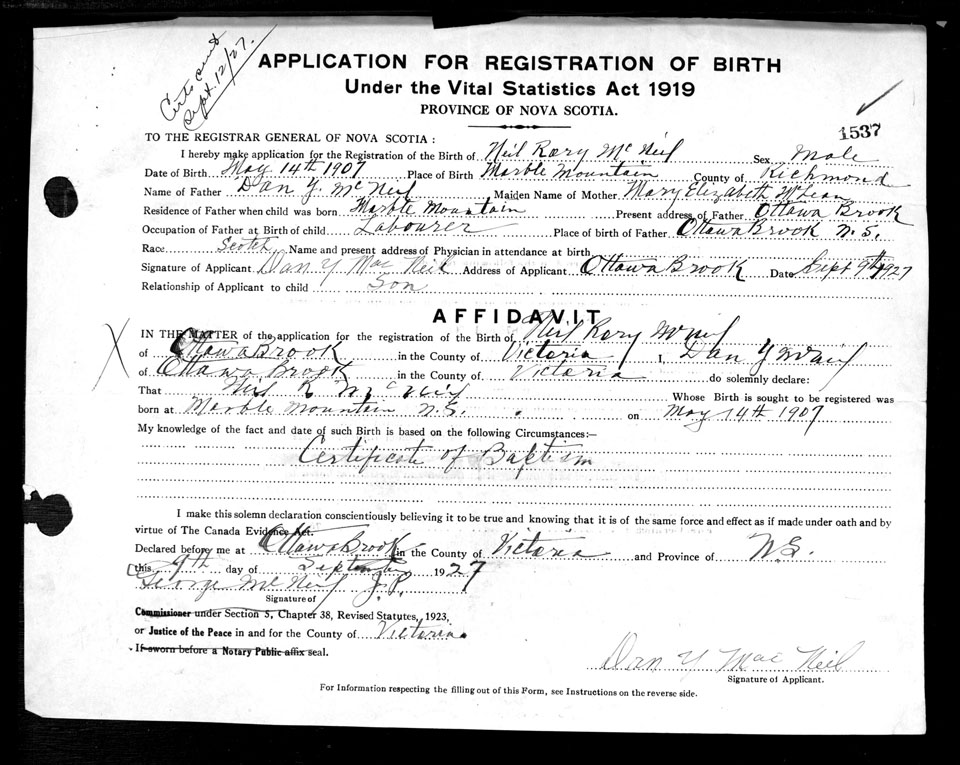 Certs cut
Sept. 12/27.
APPLICATION FOR REGISTRATION OF BIRTH
Under the Vital Statistics Act 1919
PROVINCE OF NOVA SCOTIA.
1537
TO THE REGISTRAR GENERAL OF NOVA SCOTIA :
I hereby make application for the Registration of the Birth of Neil Rory McNeil Sex Male
Date of Birth May 14th 1907 Place of Birth Marble Mountain County of Richmond
Name of Father Dan Y McNeil Maiden Name of Mother Mary Elizabeth McLean
Residence of Father when child was born Marble Mountain Present address of Father Ottawa Brook
Occupation of Father at Birth of child Labourer Place of birth of Father Ottawa Brook N.S.
Race Scotch Name and present address of Physician in attendance at birth
Signature of Applicant Dan Y Mac Neil Address of Applicant Ottawa Brook Date Sept 9th 1927
Relationship of Applicant to child Son
AFFIDAVIT
IN THE MATTER of the application for the registration of the Birth of Neil Rory McNeil
of Ottawa Brook in the County of Victoria I, Dan Y McNeil
of Ottawa Brook in the County of Victoria do solemnly declare:
That Neil R McNeil Whose Birth is sought to be registered was
born at Marble Mountain N.S. on May 14th 1907
My knowledge of the fact and date of such Birth is based on the following Circumstances:—
Certificate of Baptism
I make this solemn declaration conscientiously believing it to be true and knowing that it is of the same force and effect as if made under oath and by
virtue of The Canada Evidence Act.
Declared before me at Ottawa Brook in the County of Victoria and Province of N.S.
this 9th day of September 1927
George McNeil J.P.
Signature of
Commissioner under Section 5, Chapter 38, Revised Statutes, 1923,
or Justice of the Peace in and for the County of Victoria
If sworn before a Notary Public affix seal.
Dan Y Mac Neil
Signature of Applicant.
For Information respecting the filling out of this Form, see Instructions on the reverse side.